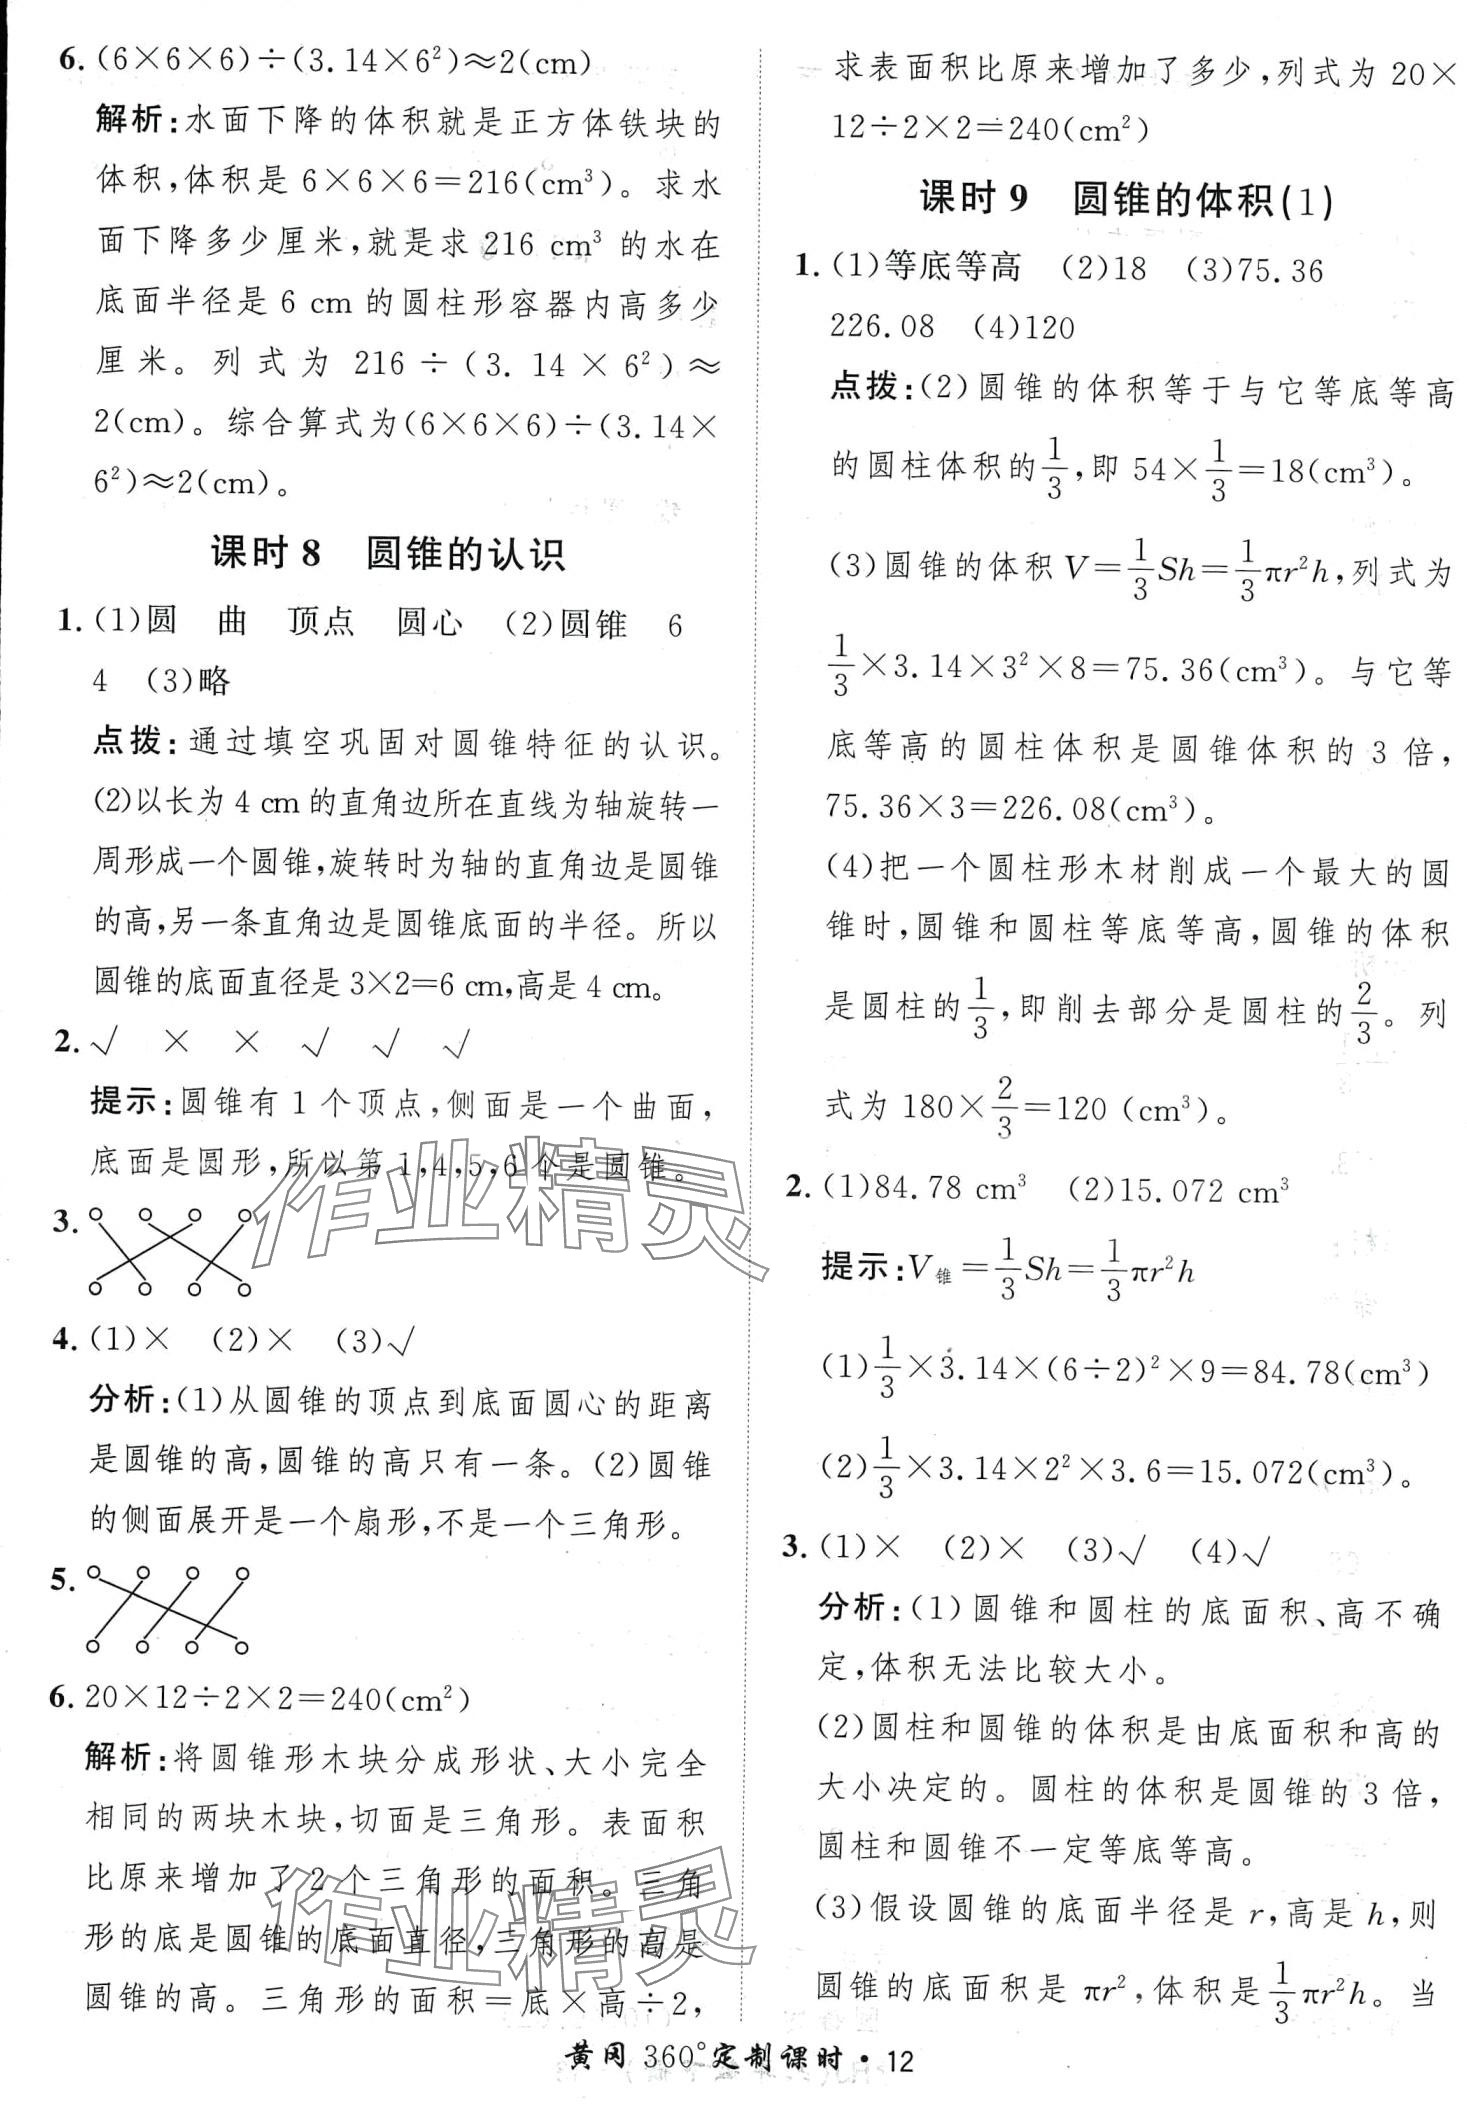 6. (6×6×6)÷(3.14×6²)≈2(cm)
解析:水面下降的体积就是正方体铁块的
体积,体积是 6×6×6=216(cm³)。求水
面下降多少厘米,就是求 216 cm³ 的水在
底面半径是 6 cm 的圆柱形容器内高多少
厘米。列式为 216÷(3.14×6²)≈
2(cm)。综合算式为(6×6×6)÷(3.14×
6²)≈2(cm)。
课时 8 圆锥的认识
1. (1)圆 曲 顶点 圆心 (2)圆锥 6
4 (3)略
点拨:通过填空巩固对圆锥特征的认识。
(2)以长为 4 cm 的直角边所在直线为轴旋转一
周形成一个圆锥,旋转时为轴的直角边是圆锥
的高,另一条直角边是圆锥底面的半径。所以
圆锥的底面直径是 3×2=6 cm,高是 4 cm。
2. √ × × √ √ √
提示:圆锥有 1 个顶点,侧面是一个曲面,
底面是圆形,所以第 1,4,5,6 个是圆锥。
3.
4. (1)× (2)× (3)√
分析:(1)从圆锥的顶点到底面圆心的距离
是圆锥的高,圆锥的高只有一条。(2)圆锥
的侧面展开是一个扇形,不是一个三角形。
5.
6. 20×12÷2×2=240(cm²)
解析:将圆锥形木块分成形状、大小完全
相同的两块木块,切面是三角形。表面积
比原来增加了 2 个三角形的面积。三角
形的底是圆锥的底面直径,三角形的高是
圆锥的高。三角形的面积=底×高÷2,
求表面积比原来增加了多少,列式为 20×
12÷2×2=240(cm²)
课时 9 圆锥的体积(1)
1. (1)等底等高 (2)18 (3)75.36
226.08 (4)120
点拨:(2)圆锥的体积等于与它等底等高
的圆柱体积的1/3,即 54×1/3=18(cm³)。
(3)圆锥的体积 V=1/3Sh=1/3πr²h,列式为
1/3×3.14×3²×8=75.36(cm³)。与它等
底等高的圆柱体积是圆锥体积的 3 倍,
75.36×3=226.08(cm³)。
(4)把一个圆柱形木材削成一个最大的圆
锥时,圆锥和圆柱等底等高,圆锥的体积
是圆柱的1/3,即削去部分是圆柱的2/3。列
式为 180×2/3=120 (cm³)。
2. (1)84.78 cm³ (2)15.072 cm³
提示:V锥=1/3Sh=1/3πr²h
(1)1/3×3.14×(6÷2)²×9=84.78(cm³)
(2)1/3×3.14×2²×3.6=15.072(cm³)。
3. (1)× (2)× (3)√ (4)√
分析:(1)圆锥和圆柱的底面积、高不确
定,体积无法比较大小。
(2)圆柱和圆锥的体积是由底面积和高的
大小决定的。圆柱的体积是圆锥的 3 倍,
圆柱和圆锥不一定等底等高。
(3)假设圆锥的底面半径是 r,高是 h,则
圆锥的底面积是 πr²,体积是1/3πr²h。当
黄冈 360°定制课时·12
作业精灵
作业精灵